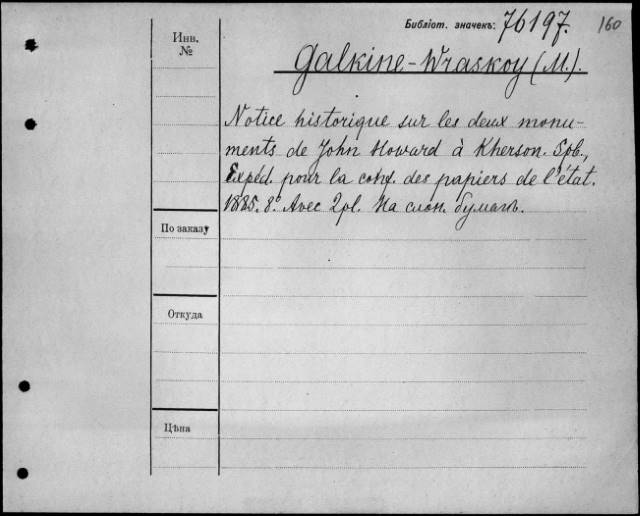 Библіот. значекъ: 76197. 160
Инв.
№
Galkine-Wraskoy (M.).
Notice historique sur les deux monu-
ments de John Howard à Kherson. Spb.,
Exped. pour la conf. des papiers de l'état.
1885. 8º. Avec 2 pl. На слон. бумагѣ.
По заказу
Откуда
Цѣна